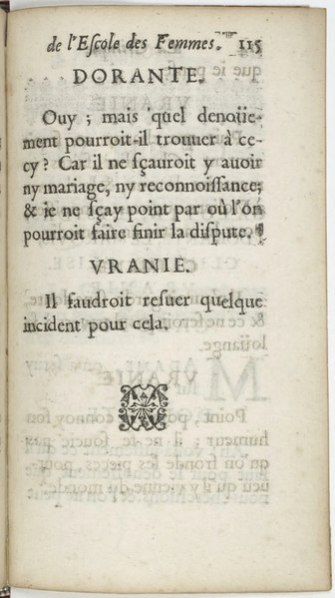 de l'Eſcole des Femmes. 115
DORANTE.
Ouy ; mais quel denoüe-
ment pourroit-il trouuer à ce-
cy ? Car il ne ſçauroit y auoir
ny mariage, ny reconnoiſſance;
& ie ne ſçay point par où l'on
pourroit faire finir la diſpute.
VRANIE.
Il faudroit reſuer quelque
incident pour cela.